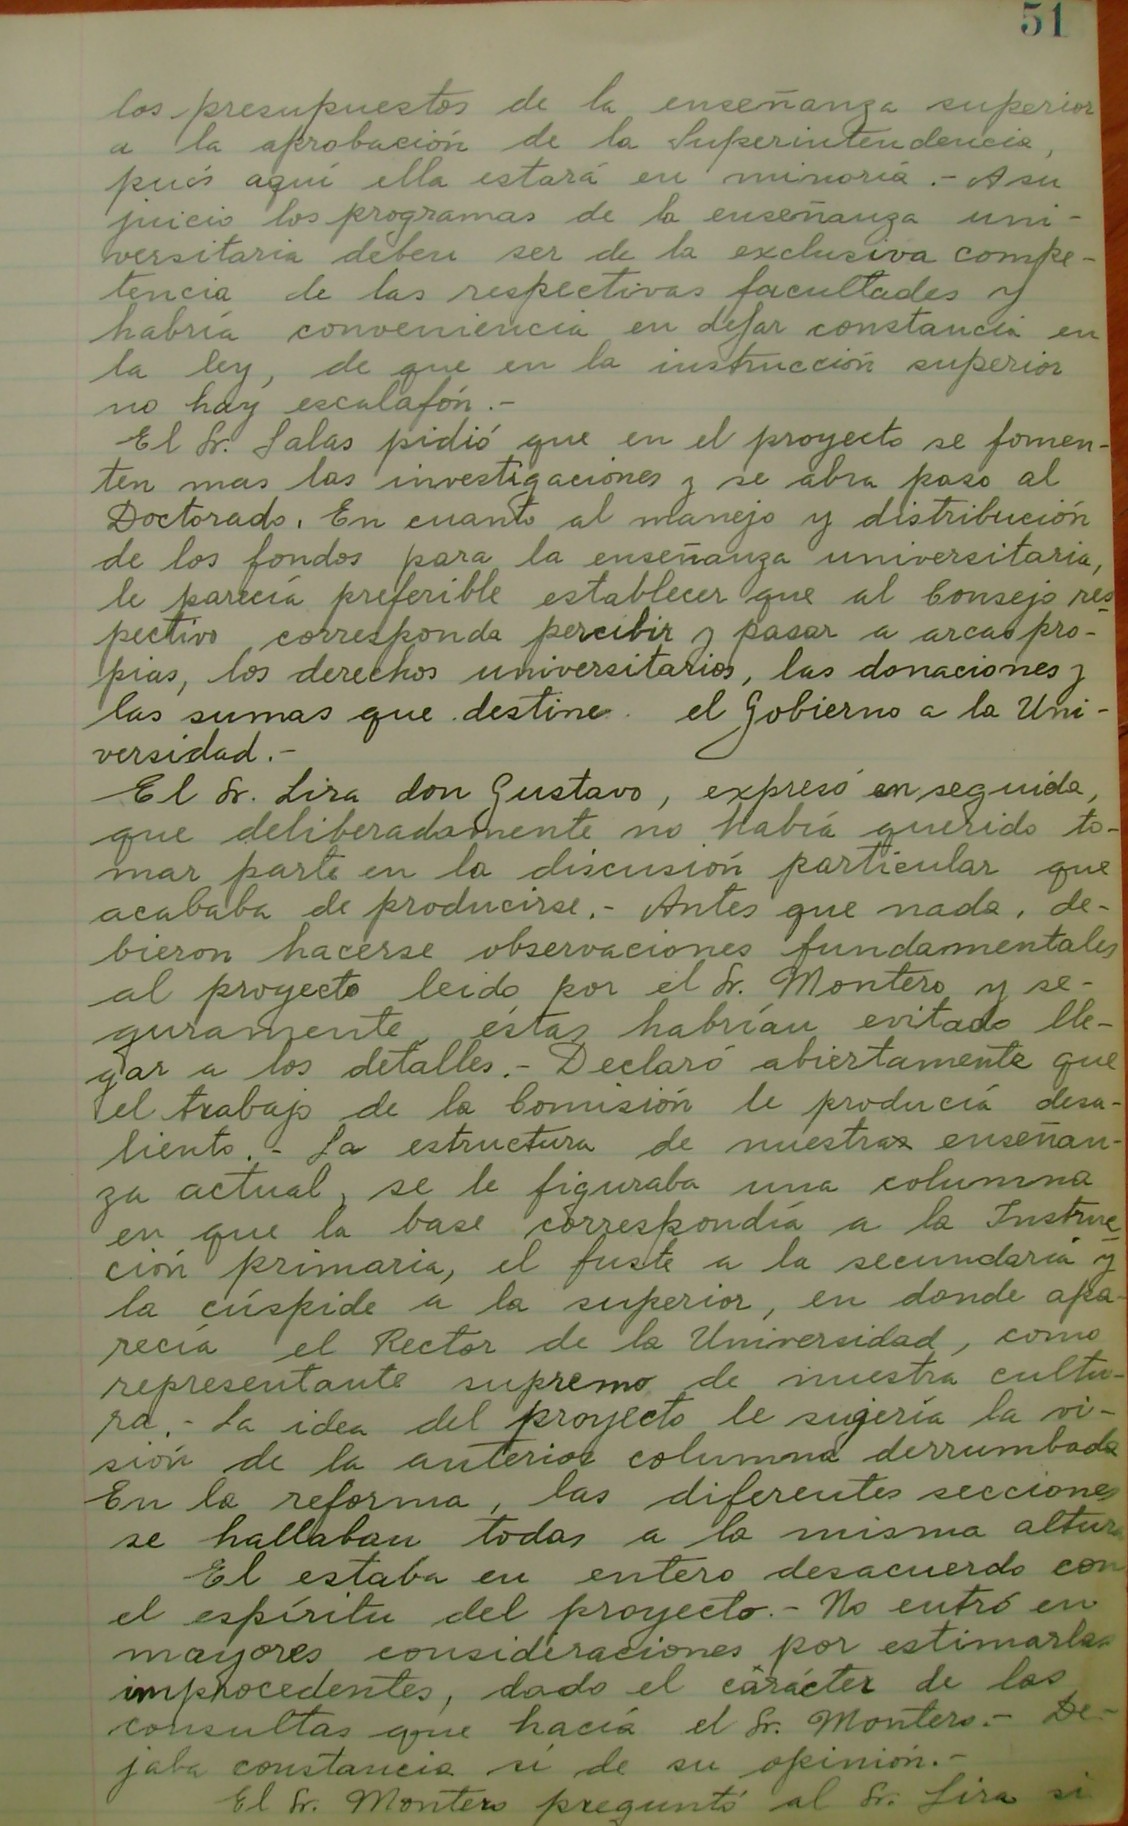 51
los presupuestos de la enseñanza superior
a la aprobación de la Superintendencia,
pués aquí ella estará en minoría.- A su
juicio los programas de la enseñanza uni-
versitaria deben ser de la exclusiva compe-
tencia de las respectivas facultades y
habría conveniencia en dejar constancia en
la ley, de que en la instrucción superior
no hay escalafón.-
El Sr. Salas pidió que en el proyecto se fomen-
ten mas las investigaciones y se abra paso al
Doctorado. En cuanto al manejo y distribución
de los fondos para la enseñanza universitaria,
le parecía preferible establecer que al Consejo res-
pectivo corresponda percibir y pasar a arcas pro-
pias, los derechos universitarios, las donaciones y
las sumas que destine el Gobierno a la Uni-
versidad.-
El Sr. Lira don Gustavo, expresó en seguida,
que deliberadamente no había querido to-
mar parte en la discusión particular que
acababa de producirse.- Antes que nada, de-
bieron hacerse observaciones fundamentales
al proyecto leido por el Sr. Montero y se-
guramente, éstas habrían evitado lle-
gar a los detalles.- Declaró abiertamente que
el trabajo de la Comisión le producía desa-
liento.- La estructura de nuestras enseñan-
za actual, se le figuraba una columna
en que la base correspondía a la Instruc-
ción primaria, el fuste a la secundaria y
la cúspide a la superior, en donde apa-
recía el Rector de la Universidad, como
representante supremo de nuestra cultu-
ra.- La idea del proyecto le sugería la vi-
sión de la anterior columna derrumbada
En la reforma, las diferentes secciones
se hallaban todas a la misma altura
El estaba en entero desacuerdo con
el espíritu del proyecto.- No entró en
mayores consideraciones por estimarlas
improcedentes, dado el carácter de las
consultas que hacía el Sr. Montero.- De-
jaba constancia sí de su opinión.-
El Sr. Montero preguntó al Sr. Lira si